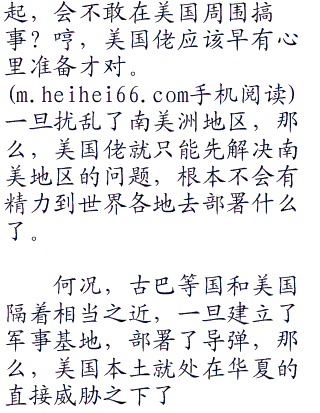 起，会不敢在美国周围搞
事？哼，美国佬应该早有心
里准备才对。
(m.heihei66.com手机阅读)
一旦扰乱了南美洲地区，那
么，美国佬就只能先解决南
美地区的问题，根本不会有
精力到世界各地去部署什么
了。
何况，古巴等国和美国
隔着相当之近，一旦建立了
军事基地，部署了导弹，那
么，美国本土就处在华夏的
直接威胁之下了